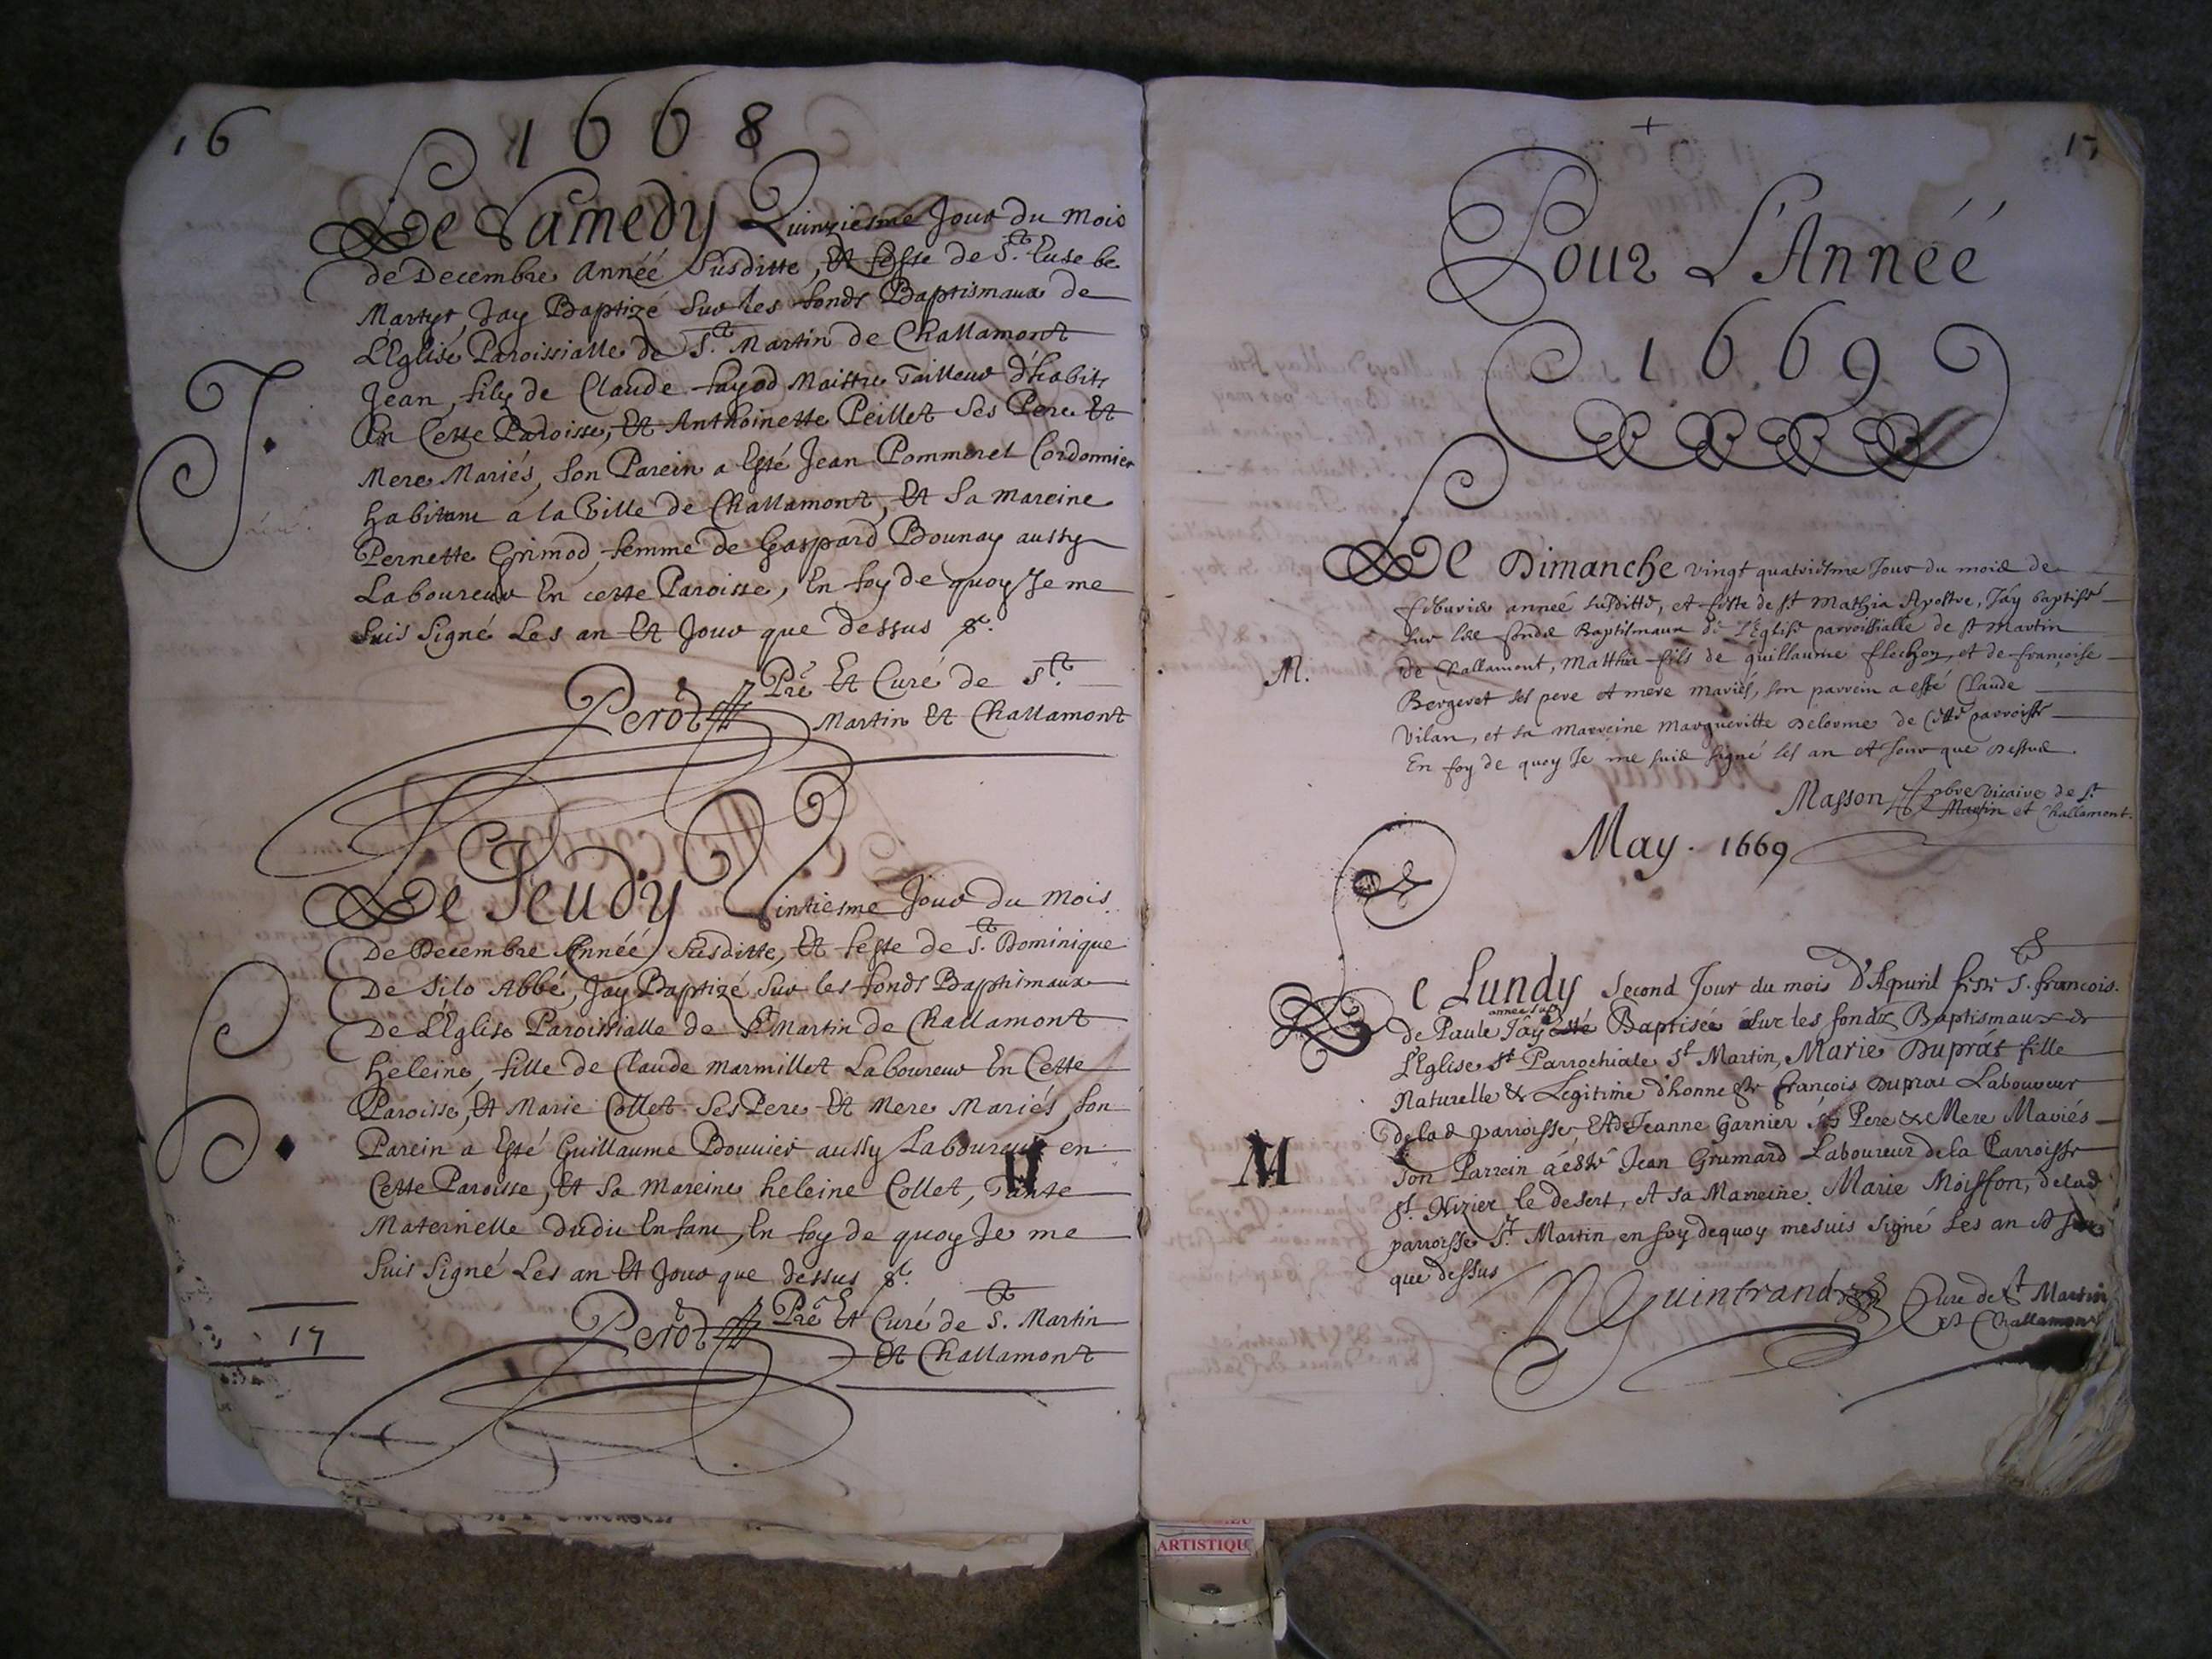 16
1668
Le Samedy Quinziesme Jour du Mois
de Decembre Année Susditte, Et feste de St. Eusebe
Martyr, Jay Baptizé Sur les fonds Baptismaux de
L'Eglise Paroissialle de St. Martin de Challamont
Jean, fils de Claude fayod Maistre Tailleur d'habits
En Cette Paroisse, Et Anthoinette Peillet Ses Pere Et
Mere Mariés, Son Parein a Esté Jean Pommeret Cordonnier
habitant a la Ville de Challamont, Et Sa mareine
Pernette Grimod femme de Gaspard Bounay aussy
Laboureur En cette Paroisse, En foy de quoy Je me
Suis Signé Les an Et Jour que dessus
J.
Perod Pre Et Curé de St.
Martin Et Challamont
Le Jeudy Vintiesme Jour du Mois
De Decembre Année Susditte, Et feste de St. Dominique
De Silo Abbé, Jay Baptizé Sur les fonds Baptismaux
De L'Eglise Paroissialle de St Martin de Challamont
heleine, fille de Claude Marmillet Laboureur En Cette
Paroisse, Et Marie Collet Ses Pere Et Mere Mariés, Son
Parein a Esté Guillaume Bouvier aussy Laboureur en
Cette Paroisse, Et Sa Mareine heleine Collet, Tante
Maternelle dudit Enfant, En foy de quoy Je me
Suis Signé Les an Et Jour que dessus
H
Perod Pre Et Curé de St. Martin
Et Challamont
17
17
Pour L'Année
1669
Le Dimanche vingt quatriesme Jour du mois de
febvrier année susditte, et feste de st Mathia Apostre, Jay baptisé
sur les fonds Baptismaux de l'Eglise parroissialle de st Martin
de Challamont, Matthie fils de guillaume flechon, et de françoise
Bergeret ses pere et mere mariés, son parrein a esté Claude
Vilan, et sa marreine Margueritte Delorme de cette parroisse
En foy de quoy Je me suis signé les an et Jour que dessus.
M.
Masson pbre vicaire de st
Martin et Challamont.
May. 1669
Le Lundy Second Jour du mois D'Apuril feste S. francois.
de Paule Jay esté Baptisée sur les fonds Baptismaux de
L'Eglise St Parrochiale St Martin, Marie Duprat fille
Naturelle & Legitime d'honneste françois Duprat Laboureur
de lad parroisse, Et de Jeanne Garnier ses Pere & Mere Mariés
Son Parrain a esté Jean Grumard Laboureur de la Parroisse
St. Nizier le desert, et sa Marreine Marie Moisson, de lad
parroisse St Martin, en foy dequoy me suis signé Les an et Jour
que dessus
M
Guintrand Curé de St Martin
et Challamont
ARTISTIQU